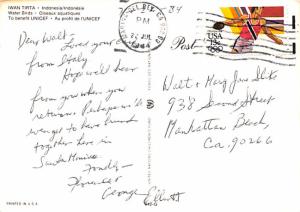 IWAN TIRTA • Indonesia/Indonésie
Water Birds • Oiseaux aquatiques
To benefit UNICEF • Au profit de l'UNICEF
PM
1984
Post
USA
Dear Walt,
Loved your
from Italy
Hope we'll hear
from you when you
return. Perhaps we'll
to have lunch
together here in
Santa Monica
Fondly
Florence &
George
Walt & Mary Jane
938 Second Street
Manhattan Beach
Ca. 90266
PRINTED IN U.S.A.